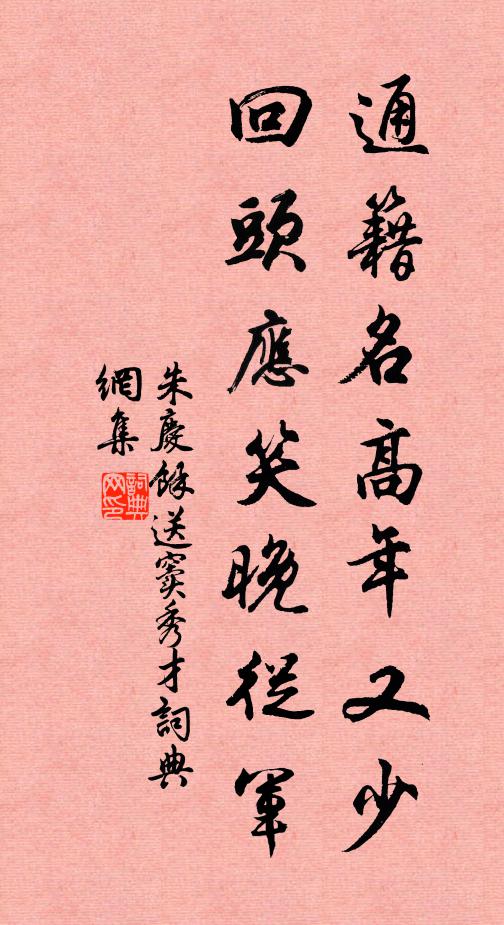 通籍名高年又少
回頭應笑晚從軍
朱慶餘送竇秀才詞典
網集
詞典
网印